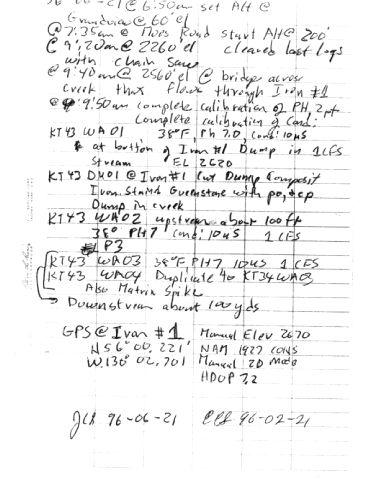 96-06-21 @ 6:50am set Alt @
Grandview @ 60' el
@ 7:35am @ Moss Road start Alt @ 200'
@ 9:20am @ 2260' el cleared last logs
with chain saw
@ 9:40am @ 2560' el @ bridge across
creek that flows through Iron #1
@ 9:50am complete calibration of PH, 2pt
Complete calibration of Cond:
KT43 WA01 38°F, Ph 7.0, cond: 10µS
* at bottom of Iron #1 Dump in 1 CFS
Stream EL 2620
KT43 DM01 @ Iron #1 Cut Dump Composit
Iron Staind Greenstone with po, & cp
Dump in creek
KT43 WA02 upstream about 100ft
38° PH7 Cond: 10µS 1 CFS
P3
KT43 WA03 38°F PH7 10µS 1 CFS
KT43 WA04 Duplicate to KT34WA03
Also Matrix Spike
Downstream about 100yds
GPS @ Iron #1 Manual Elev 2670
N56° 00, 221' NAM 1927 CONUS
W.130° 02, 701 Manual 2D Mode
HDOP 7.2
96-06-21 96-02-21